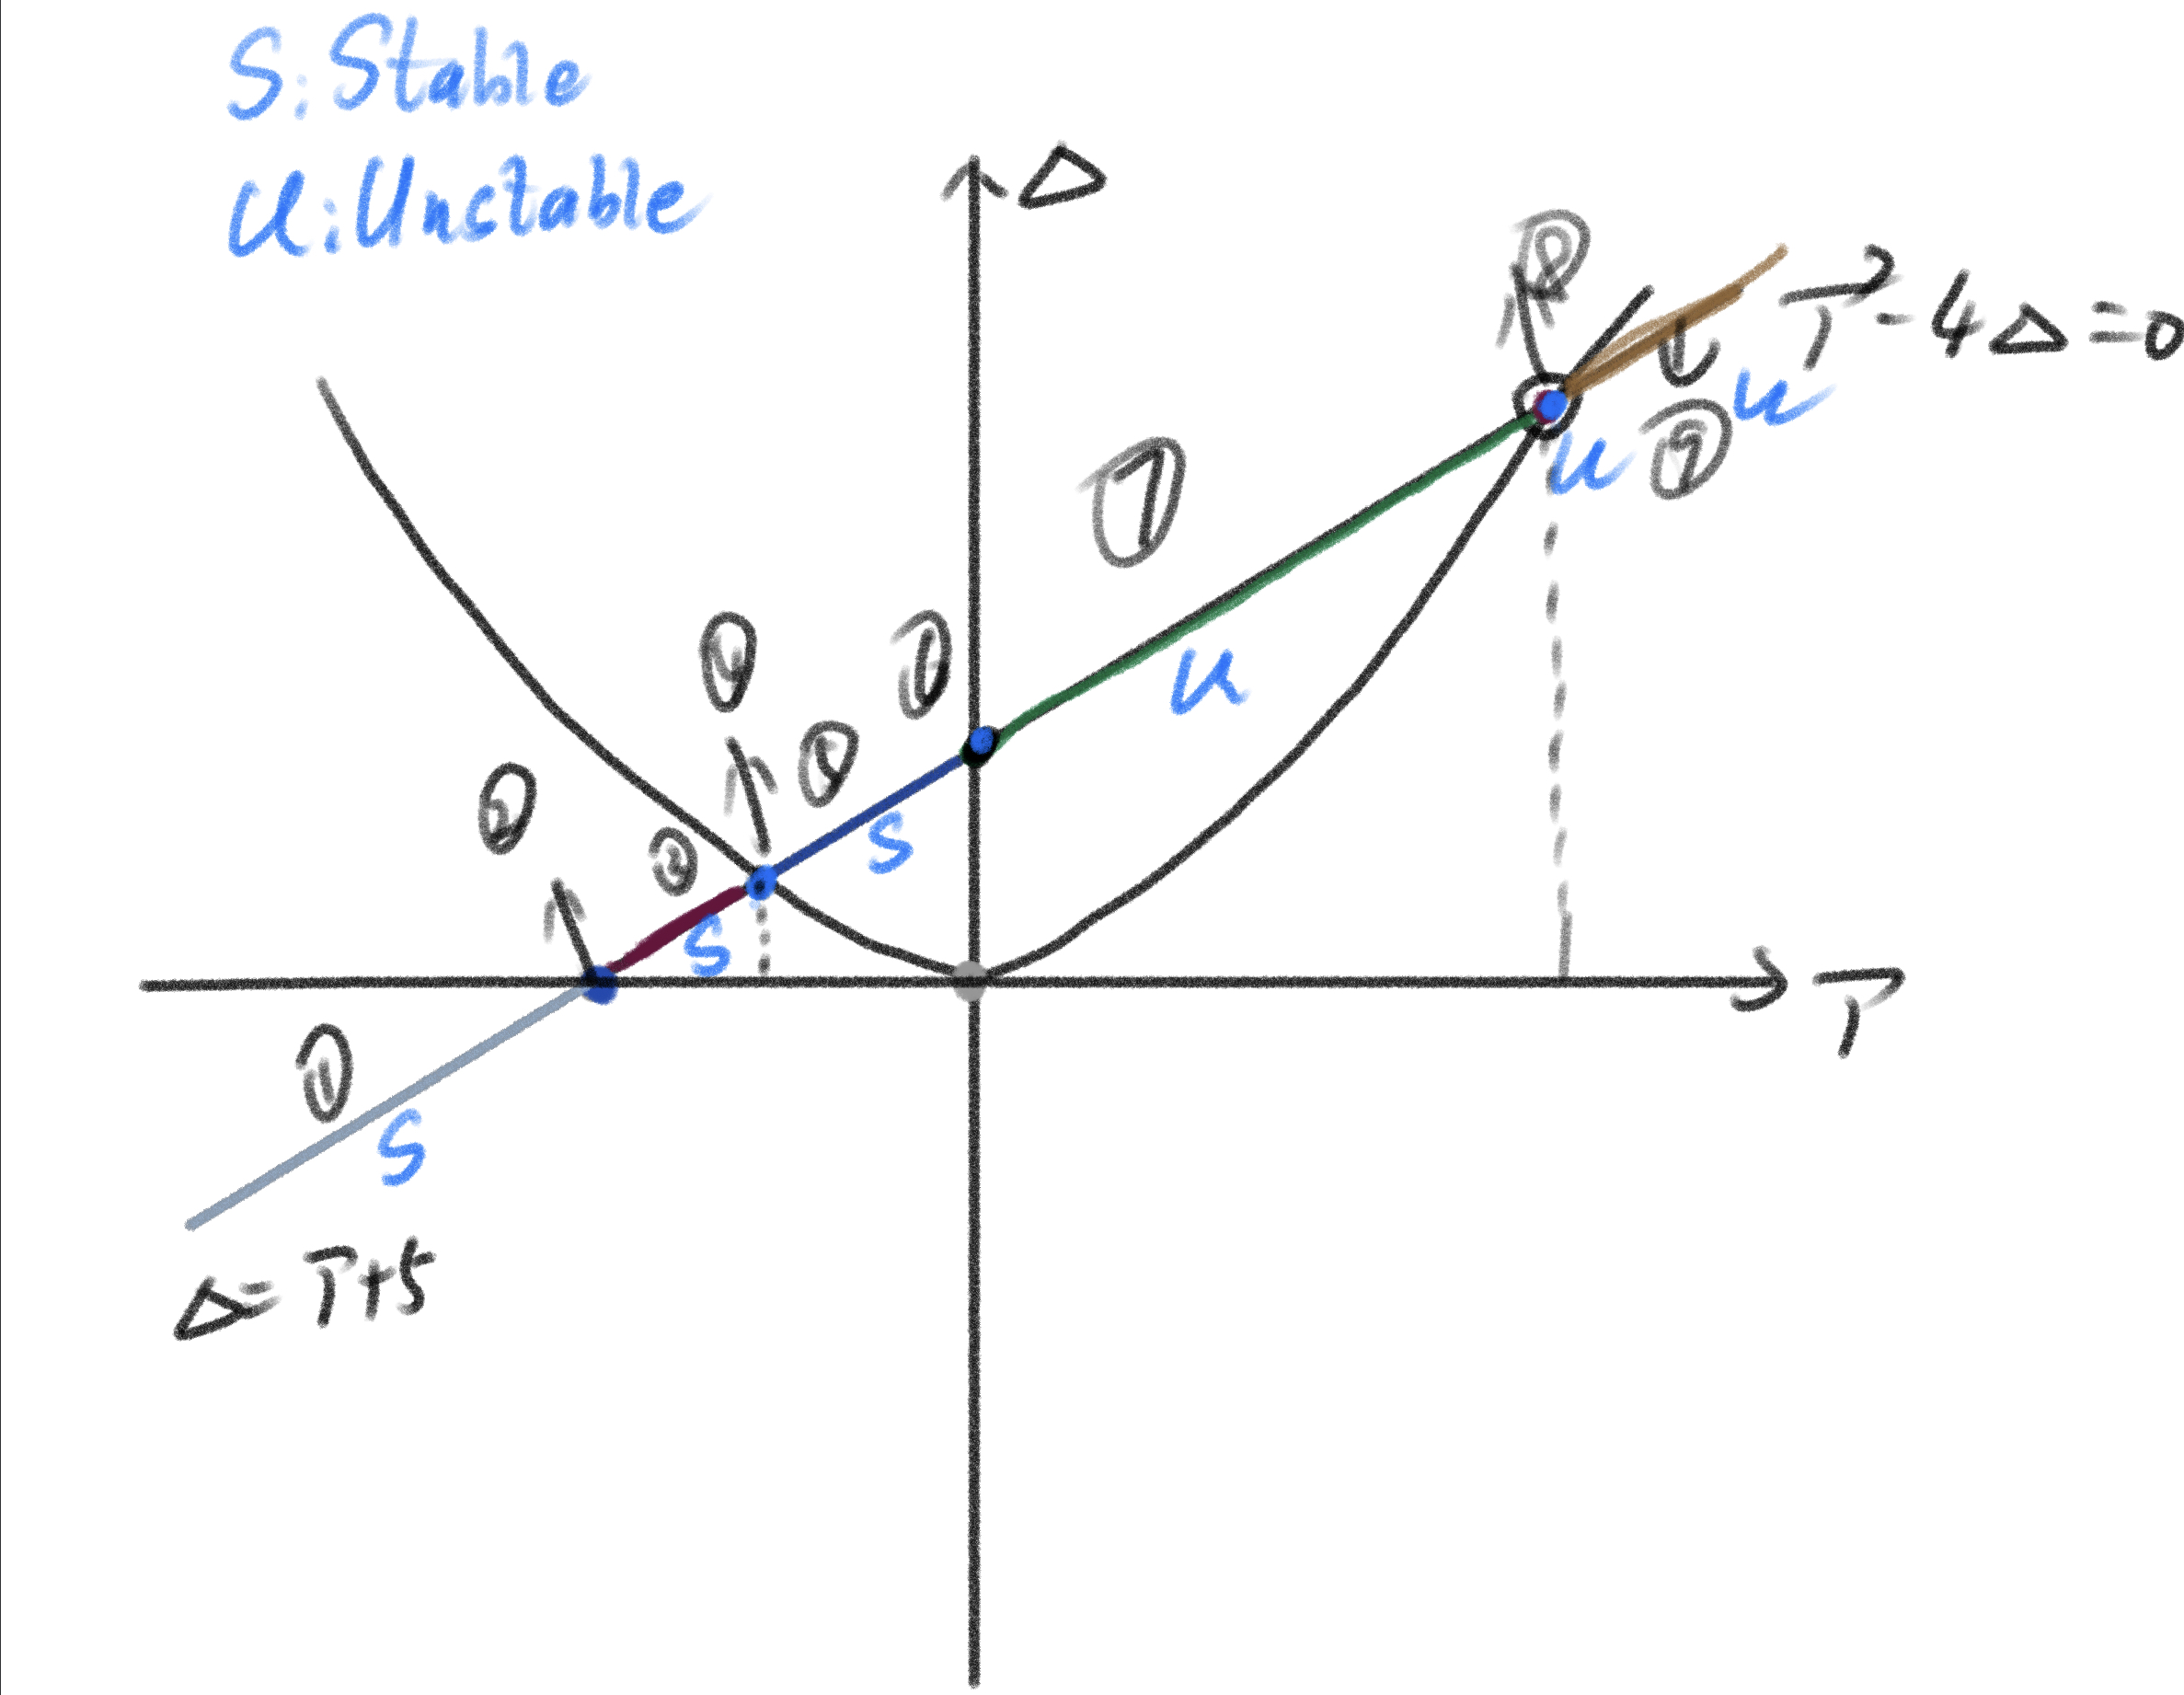 S: Stable
U: Unstable
Δ
⑧
T²-4Δ=0
U
U ⑨
⑦
U
⑤
S
②
③
S
T
①
S
Δ=T+5